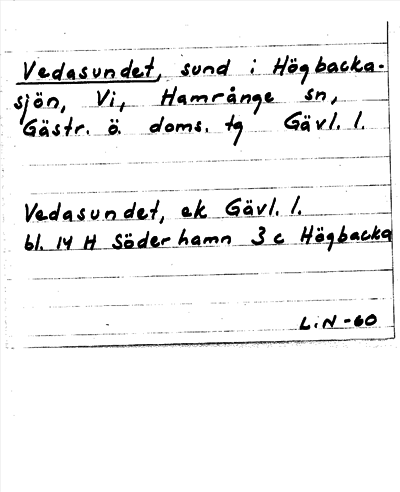 Vedasundet, sund i Högbacka-
sjön, Vi, Hamrånge sn,
Gästr. ö. doms. tg Gävl. l.
Vedasundet, ek Gävl. l.
bl. 14 H Söderhamn 3 c Högbacka
L.N-60